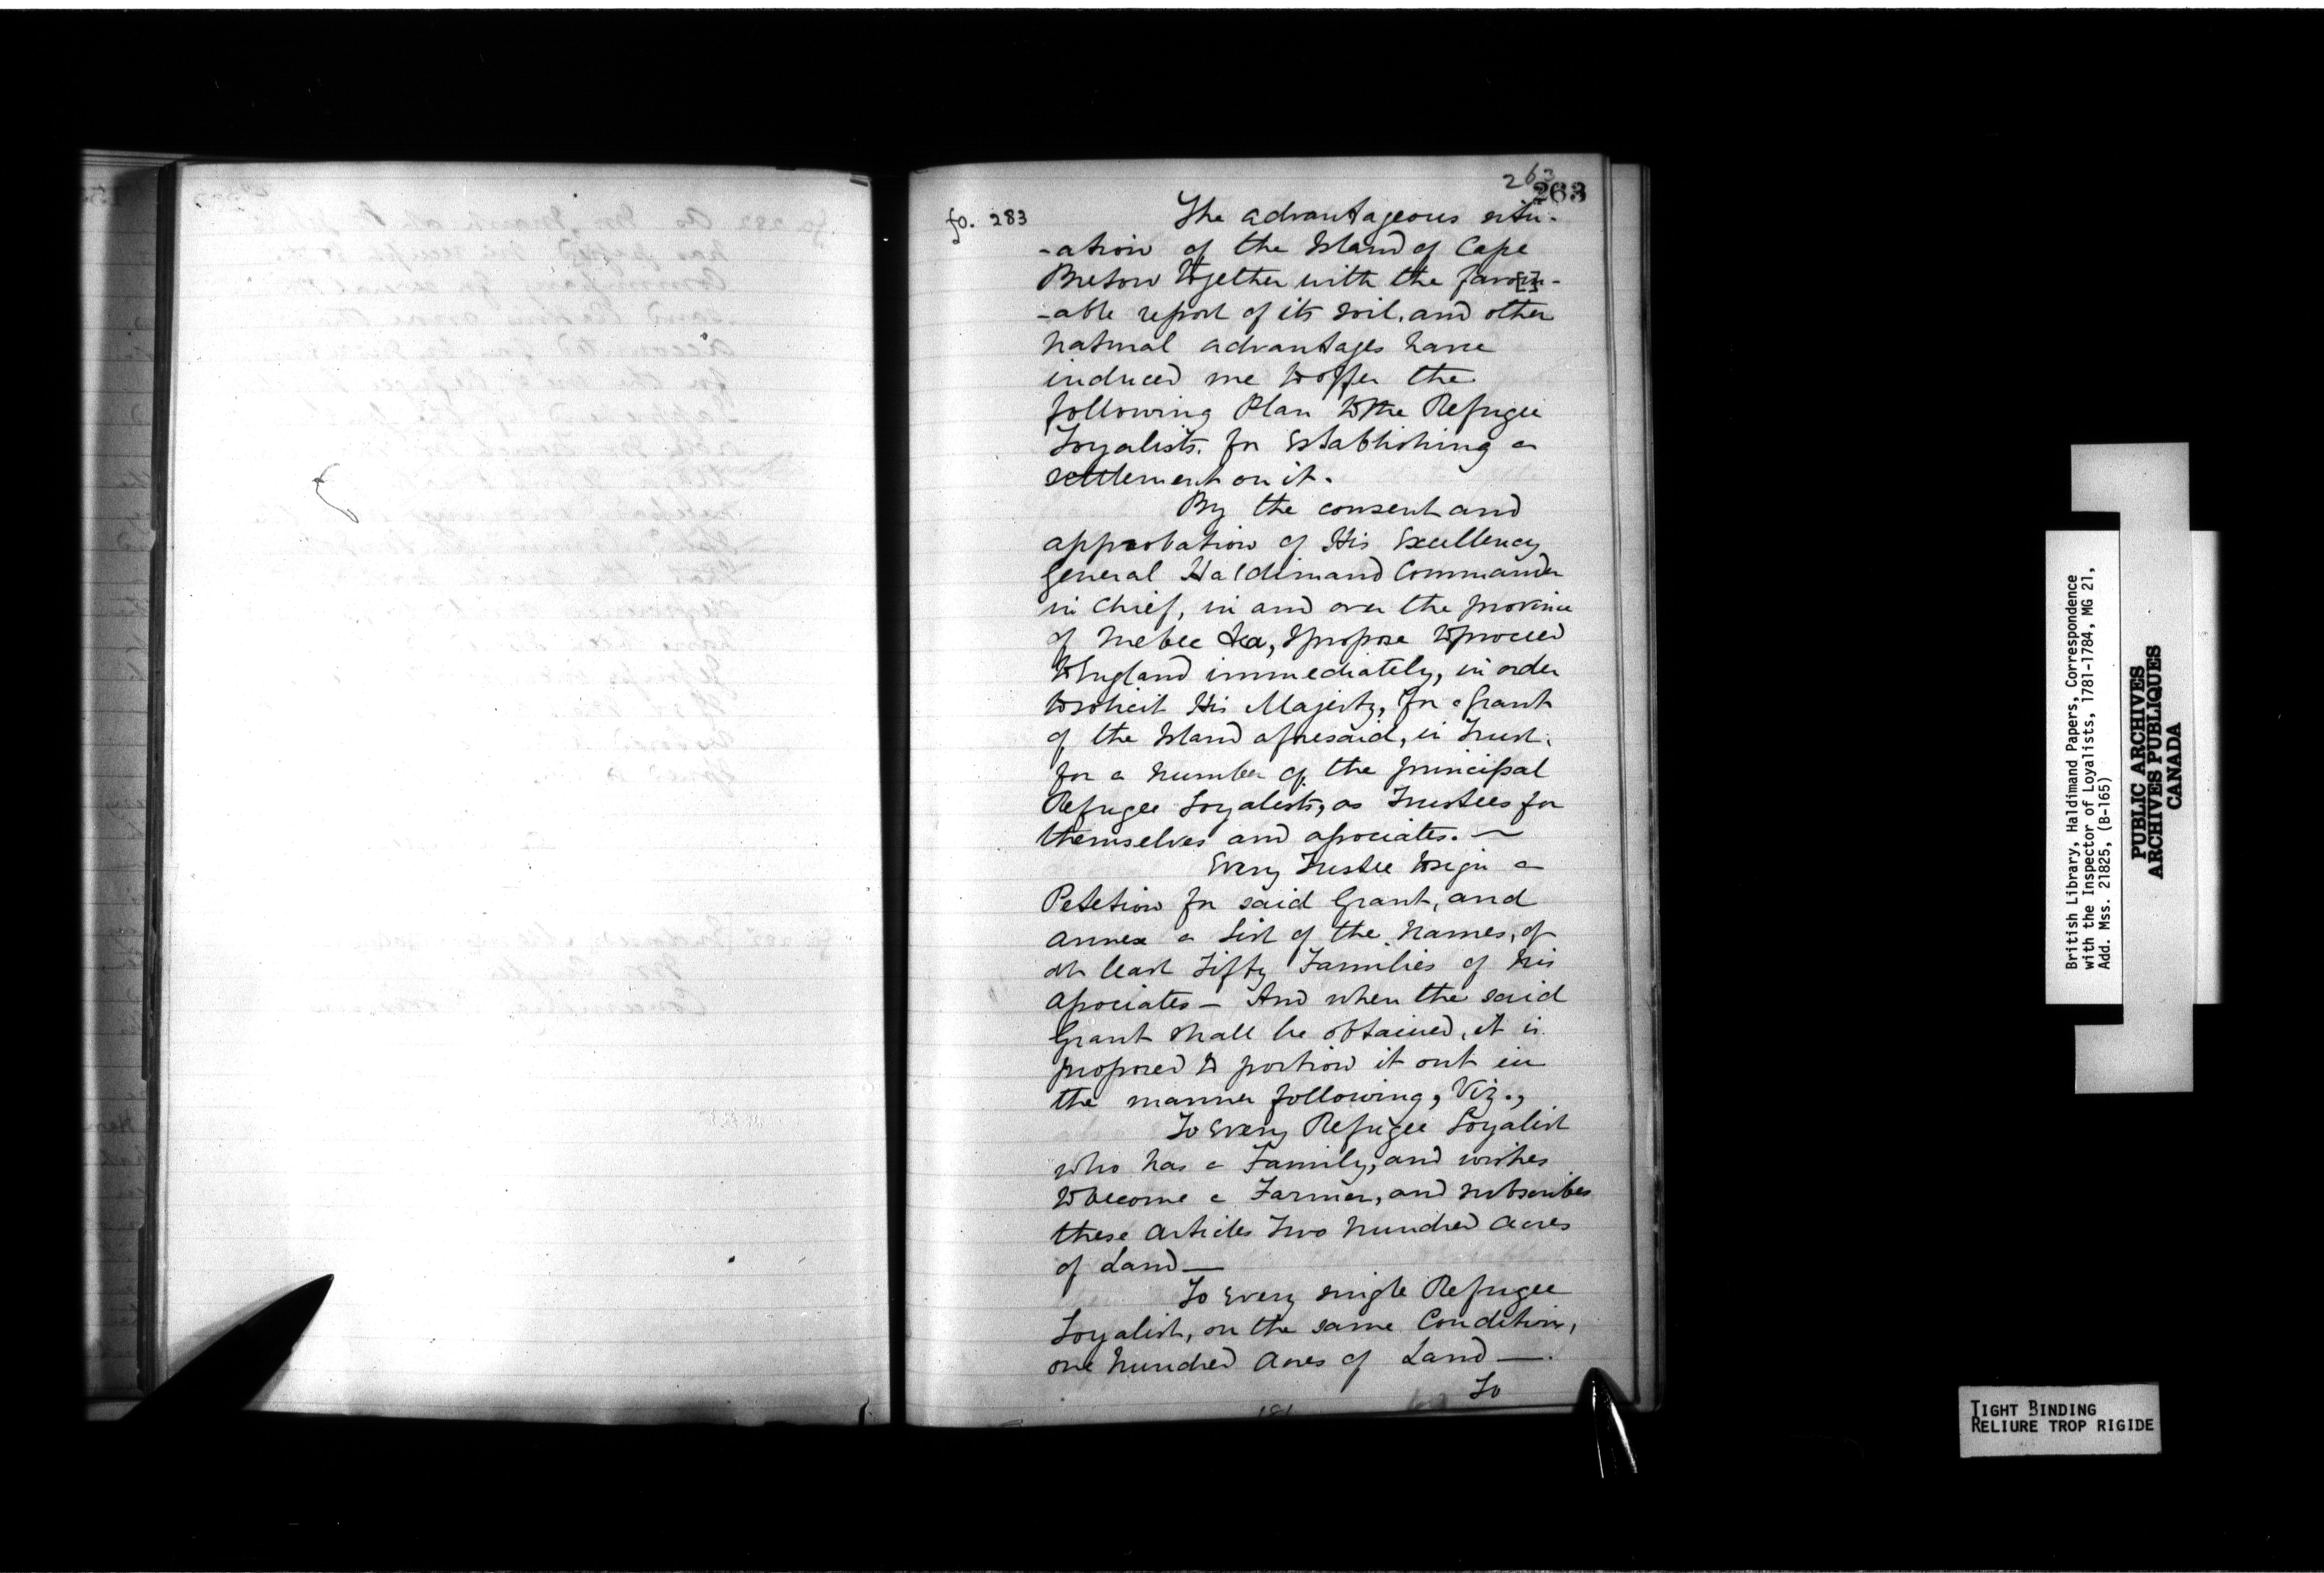 263
263
fo. 283
The advantageous situ-
-ation of the Island of Cape
Breton together with the favou[r]-
-able report of its soil, and other
natural advantages have
induced me to offer the
following Plan to the Refugee
Loyalists, for Establishing a
settlement on it.
By the consent and
approbation of His Excellency
General Haldimand Commander
in Chief, in and over the province
of Quebec &ca, I propose to proceed
to England immediately, in order
to solicit His Majesty, for a Grant
of the Island aforesaid, in Trust,
for a number of the principal
Refugee Loyalists, as Trustees for
themselves and associates. —
Every Trustee to sign a
Petetion for said Grant, and
annex a List of the Names, of
at least Fifty Families of his
associates — And when the said
Grant shall be obtained, it is
proposed to portion it out in
the manner following, Viz.,
To Every Refugee Loyalist
who has a Family, and wishes
to become a Farmer, and subscribes
these Articles Two hundred Acres
of Land —
To Every single Refugee
Loyalist, on the same Conditions,
one hundred Acres of Land —.
To
British Library, Haldimand Papers, Correspondence
with the Inspector of Loyalists, 1781-1784, MG 21,
Add. Mss. 21825, (B-165)
PUBLIC ARCHIVES
ARCHIVES PUBLIQUES
CANADA
TIGHT BINDING
RELIURE TROP RIGIDE